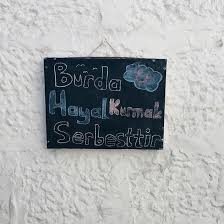 Burda
Hayal Kurmak
Serbesttir